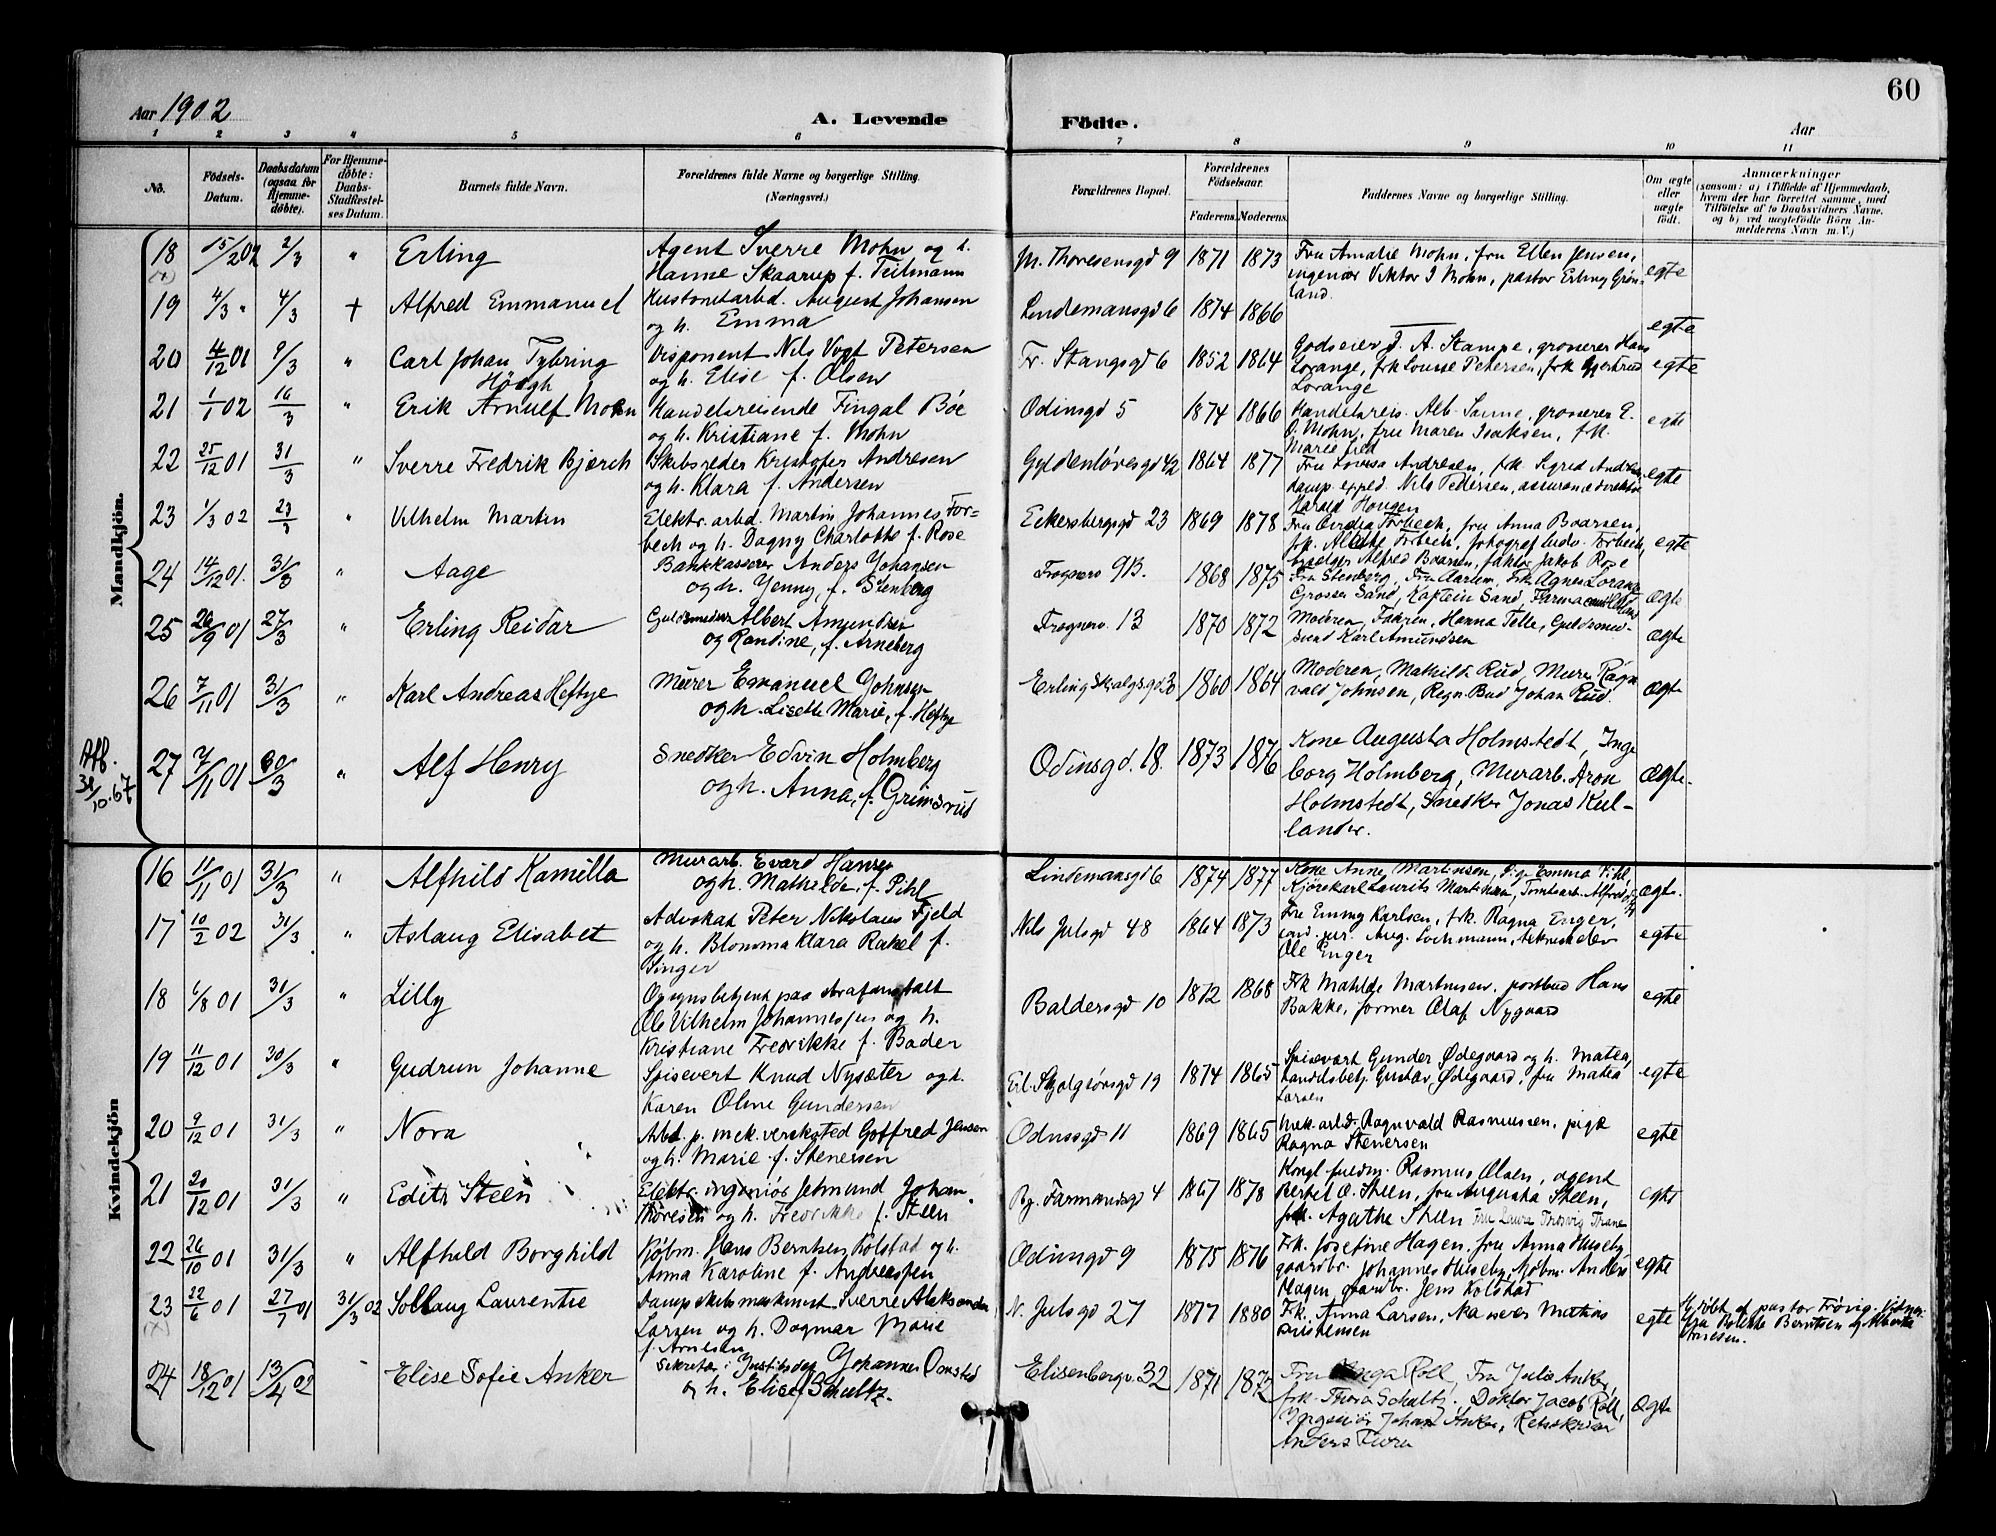 60
Aar 1902
A. Levende Födte.
Aar
1 2 3 4 5 6 7 8 9 10 11
No.
Födsels-Datum.
Daabsdatum (ogsaa for Hjemmedöbte).
For Hjemmedöbte: Daabs-Stadfæstelses Datum.
Barnets fulde Navn.
Forældrenes fulde Navne og borgerlige Stilling.
(Næringsvei.)
Forældrenes Bopæl.
Forældrenes Födselsaar.
Faderens. Moderens.
Faddernes Navne og borgerlige Stilling.
Om ægte eller uægte födt.
Anmærkninger
(saasom: a) i Tilfælde af Hjemmedaab, hvem der har forrettet samme, med Tilföielse af to Daabsvidners Navne, og b) ved uægtefödte Börn Anmelderens Navn m. V.)
Mandkjön.
18 15/2 02 2/3 " Erling
Agent Sverre Mohn og h.
Hanne Skaarup f. Teilmann
M. Thoresensgd 9 1871 1873
Fru Amalie Mohn, fru Ellen Jensen,
ingeniør Viktor I Mohn, pastor Erling Grøn-
land.
egte
19 4/3 " 4/3 + Alfred Emmanuel
August Johansen
og h. Emma
Lindemansgd 6 1874 1866
egte
20 4/12 01 9/3 " Carl Johan Tybring
Høegh
Disponent Nils Vogt Petersen
og h. Elise f. Olsen
Fr. Stangsgd 6 1852 1864
Godseier J. A. Stampe, grosserer Hans
Lorange, frk Louise Petersen, frk Gjertrud
Lorange
egte
21 1/1 02 16/3 " Erik Arnulf Mohn
Handelsreisende Fingal Bøe
og h. Kristiane f. Mohn
Odinsgd 5 1874 1866
Handelsreis. Alb. Sanne, grosserer E.
O. Mohn, fru Maren Isaksen, frk.
Marie
egte
22 25/12 01 31/3 " Sverre Fredrik Bjerch
Skibsreder Kristofer Andresen
og h. Klara f. Andersen
Gyldenløvesgd 42 1864 1877
Fru Lovisa Andresen, frk. Sigrid Andresen
damp. exped. Nils Pedersen, assurancedirektør
Harald Hougen
egte
23 1/3 02 23/3 " Vilhelm Martin
Elektr. arbd. Martin Johannes Tor-
bech og h. Dagny Charlotte f. Rose
Eckersbergsgd 23 1869 1878
Fru Torbech, fru Anna Boarsen,
frk. Torbech, fotograf Ludv. Torbech,
Alfred Boarsen, faktor Jakob Rose
egte
24 14/12 01. 31/3 " Aage
Bankkasserer Anders Johansen
og h. Jenny, f. Stenberg
Frognerv 9B. 1868 1875
Fru Stenberg, Fru Aarum, Frk Agnes Lorange
Grosser Sand, Kaptein Sand,
ægte
25 26/9 01 27/3 " Erling Reidar
Guldsmedsv Albert Amundsen
og Randine, f. Arneberg
Frognerv. 13 1870 1872
Moderen, Faderen, Hanna Telle, Guldsmed-
svend Karl Amundsen
ægte
26 7/11 01 31/3 " Karl Andreas Heftye
Murer Emanuel Johnsen
og h. Lisette Marie, f. Heftye
Erling Skjalgsgd 3 1860 1864
Moderen, Mathilde Rud, Murer Ragn
vald Johnsen, Regn. Bud Johan Rud.
ægte
Afb.
31/10.67
27 7/11 01 30/3 " Alf Henry
Snedker Edvin Holmberg
og h. Anna, f. Grimsrud
Odinsgd. 18. 1873 1876
Kone Augusta Holmstedt, Inge
borg Holmberg, Murarb. Aron
Holmstedt, Snedker Jonas Kul-
lander.
Ægte.
Kvindekjön
16 11/11 01 31/3 " Alfhild Kamilla
Murarb. Evard Hansen
og h. Mathilde, f. Pihl
Lindemansgd 6 1874 1877
Kone Anne Martinsen, Pige Emma Pihl,
Kjørekarl Laurits Martinsen, Tomtearb. Alfred
ægte.
17 10/2 02 31/3 " Aslaug Elisabet
Advokat Peter Nikolaus Fjeld
og h. Blomma Klara Rakel f.
Singer
Nils Julsgd 48 1864 1873
Fru Emmy Karlsen, frk. Ragna Enger,
cand. jur. Aug. Lochmann,
Ole Enger
egte
18 6/8 01 31/3 " Lilly
Opsynsbetjent paa strafanstalt
Ole Vilhelm Johannessen og h.
Kristiane Fredrikke f. Bader
Baldersgd 10 1872 1868
Frk Matilde Martinsen, postbud Hans
Bakke, former Olaf Nygaard
egte
19 11/12 01 30/3 " Gudrun Johanne
Spisevert Knud Nysæter og h.
Karen Oline Gundersen
Erl. Skjalgsønsgd 19 1874 1865
Spisevært Gunder Ødegaard og h. Matea,
handelsbetj. Gustav Ødegaard, fru Matea
Larsen
egte
20 9/12 01 31/3 " Nora
Arbd. p. mek. verksted Gotfred Jensen
og h. Marie f. Stenersen
Odinsgd 11 1869 1865
Mek. arbd. Ragnvald Rasmussen, pige
Ragna Stenersen
egte
21 20/12 01 31/3 " Edith Steen
Elektr. ingeniør Johan
Thoresen og h. Fredrikke f. Steen
Rg. Farmandsgd 4 1867 1878
Kongl. fuldm. Rasmus Olsen, agent
Bertel O. Steen, fru Augusta Steen,
frk. Agathe Steen Fru Laura Thesvig Thane
egte
22 26/10 01 31/3 " Alfhild Borghild
Købm. Hans Berntsen Kolstad og h.
Anna Karoline f. Andreassen
Odinsgd 9 1875 1876
Frk. Josefine Hagen, fru Anna Huseby,
gaardbr. Johannes Huseby, Købm. Anders
Hagen, gaardbr. Jens Kolstad
egte
23 22/6 01 27/7 01 31/3 02 Solbaug Laurentse
Dampskibsmaskinist Sverre Aleksander
Larsen og h. Dagmar Marie
f. Arnesen
N. Julsgd 27 1877 1880
Frk. Anna Larsen, kasserer Mathias
Kristensen
egte
Hj. døbt af pastor Frøvig. Vidner:
fru Bolette Berntsen og Alberta
Arnesen.
24 18/12 01 13/4 02 - Elise Sofie Anker
Sekretær i Justitsdep Johannes Omsted
og h. Elise f. Schultz.
Elisenbergv. 32 1871 1872
Fru Inga Roll, Fru Julie Anker,
frk. Thora Schultz, Doktor Jacob Roll,
Ingeniør Johan Anker, Retsskriver
Anders Furu
Ægte